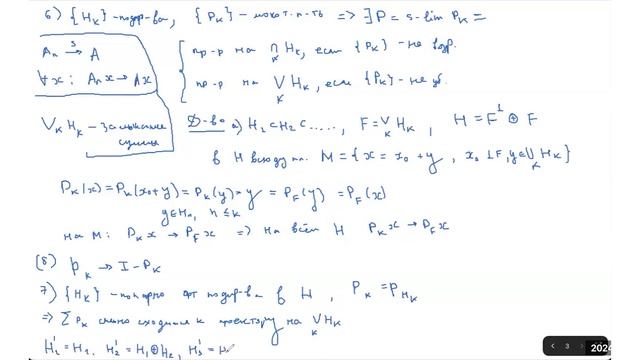 6) {H_k} - подпр-ва, {P_k} - монот. п-ть => ∃ P = s-lim P_k =
A_n →^s A
∀x: A_n x → Ax
{ пр-р на ∩_k H_k, если {P_k} - не возр.
пр-р на ∨_k H_k, если {P_k} - не уб.
∨_k H_k - замыкание суммы
Д-во а) H_1 ⊂ H_2 ⊂ ....., F = ∨_k H_k, H = F^⊥ ⊕ F
в H всюду пл. M = {x = x_0 + y, x_0 ⊥ F, y ∈ ∪_k H_k}
P_k(x) = P_k(x_0 + y) = P_k(y) = y = P_F(y) = P_F(x)
y ∈ H_n, n ≤ k
на M: P_k x → P_F x => на всём H P_k x → P_F x
(б) P_k → I - P_k
7) {H_k} - попарно орт подпр-ва в H, P_k = P_{H_k}
=> Σ P_k сильно сходится к проектору на ∨_k H_k
H'_1 = H_1. H'_2 = H_1 ⊕ H_2, H'_3 = H
3
2024